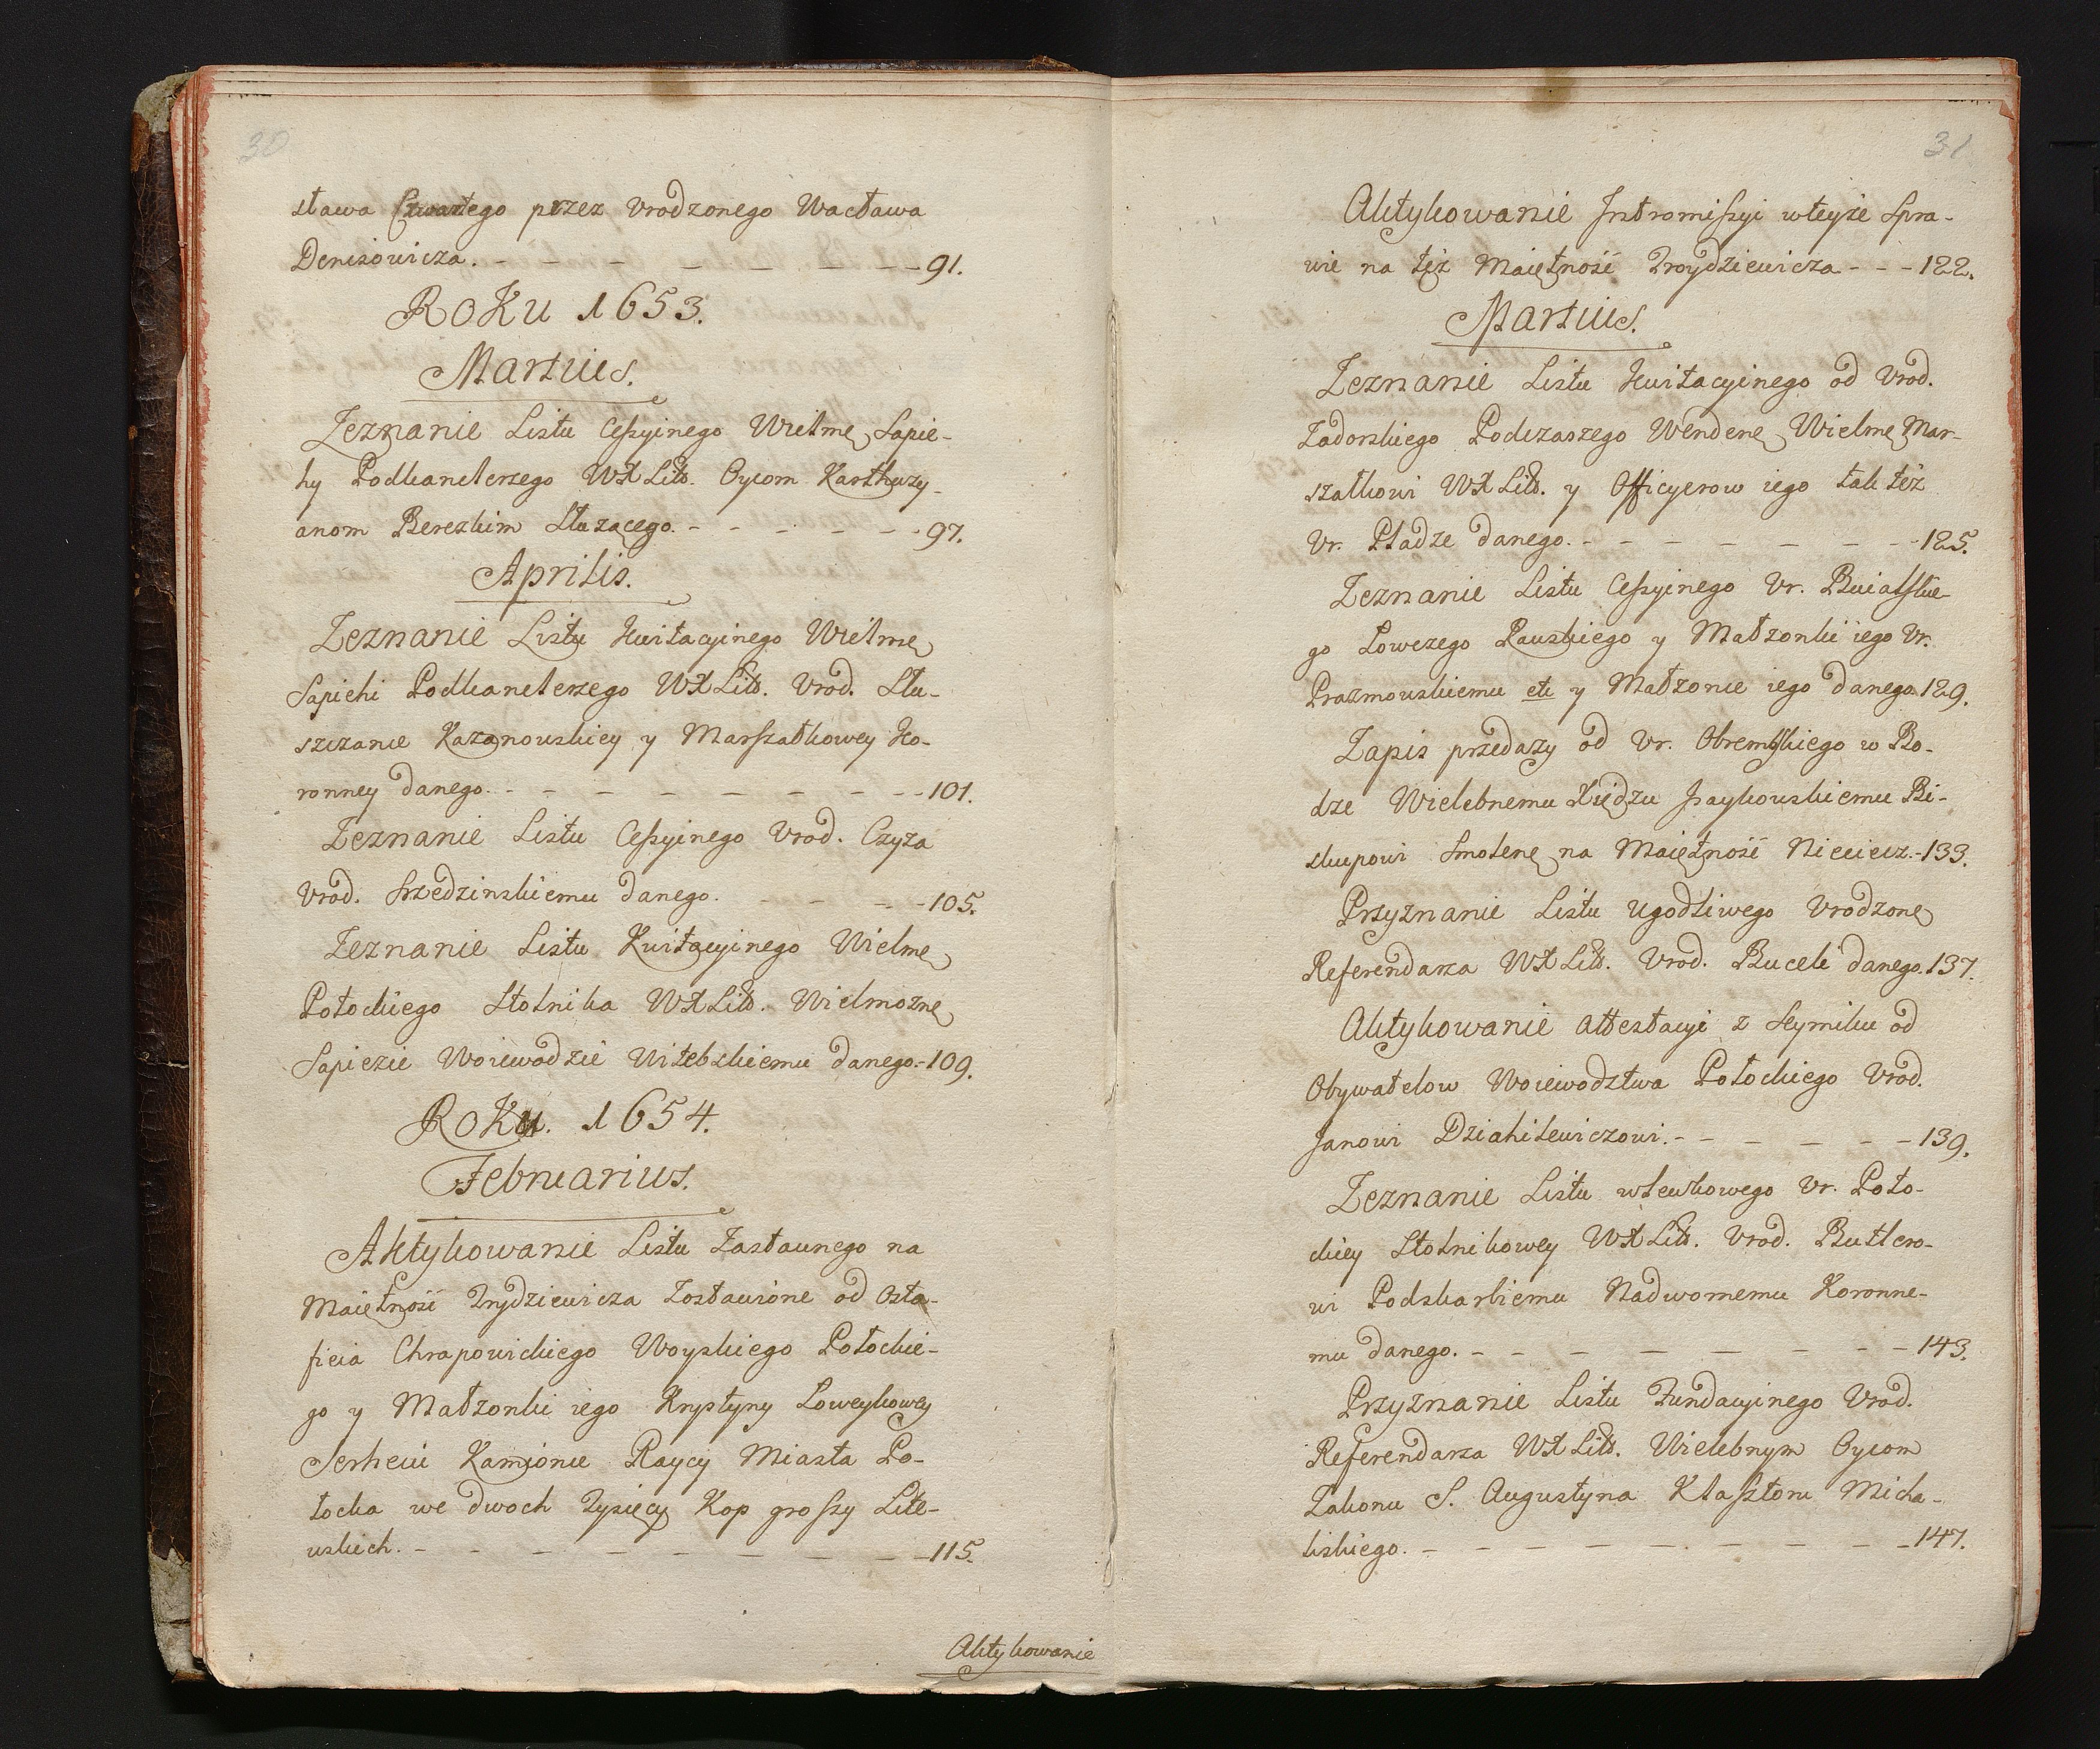 30
sława Czwartego przez Vrodzonego Wacława
Denisowicza. - - - - - - - - 91.
Roku 1653.
Martius.
Zeznanie Listu Cessyinego Wielme Sapie-
hy Podkanclerzego WXLitt. Oycom Karthuzy-
anom Berezkim Służącego. - - - - - 97.
Aprilis.
Zeznanie Listu Kwitacyinego Wielme
Sapiehi Podkanclerzego WXLitt. Vrod. Słu-
szczanie Kazanowskiey y Marszałkowey Ko-
ronney danego. - - - - - - - - 101.
Zeznanie Listu Cessyinego Vrod. Czyza
Vrod. Srzedzinskiemu danego. - - - - 105.
Zeznanie Listu Kwitacyinego Wielme
Potockiego Stolnika WXLitt. Wielmozne
Sapiezie Woiewodzie Witebskiemu danego. - 109.
Roku. 1654.
Februarius.
Aktykowanie Listu Zastawnego na
Maiętność Trydziewicza Zostawione od Osta-
ficia Chrapowickiego Woyskiego Połockie-
go y Małzonki iego Krystyny Łoweykowey
Serheiu Kamionie Raycy Miasta Po-
łocka we dwoch Tysięcy Kop groszy Lite-
wskich. - - - - - - - - - 115.
Aktykowanie
31
Aktykowanie Intromissyi wteyże Spra-
wie na też Maiętność Troydziewicza - - - 122.
Martius.
Zeznanie Listu Kwitacyinego od Vrod.
Zadorskiego Podczaszego Wendene Wielme Mar-
szałkowi WXLitt. y Officyerow iego tak też
Vr. Pładze danego. - - - - - - - 125.
Zeznanie Listu Cessyinego Vr. Buialskie-
go Łowczego Rauskiego y Małzonki iego Vr.
Prazmowskiemu etc y Małzonie iego danego. 129.
Zapis przedazy od Vr. Obremskiego w Bo-
dze Wielebnemu Xiędzu Isaykowskiemu Bi-
skupowi Smolene na Maiętność Nieciecz. - 133.
Przyznanie Listu Ugodliwego Vrodzone
Referendarza WXLitt. Vrod. Buceli danego. 137.
Aktykowanie Attestacyi z Seymiku od
Obywatelow Woiewodztwa Połockiego Vrod.
Janowi Dziahilewiczowi. - - - - - - 139.
Zeznanie Listu wlewkowego Vr. Poto-
ckiey Stolnikowey WXLitt. Vrod. Butlero-
wi Podskarbiemu Nadwornemu Koronne-
mu danego. - - - - - - - - 143.
Przyznanie Listu Fundacyinego Vrod.
Referendarza WXLitt. Wielebnym Oycom
Zakonu S. Augustyna Klasztoru Micha-
liskiego. - - - - - - - - - 147.